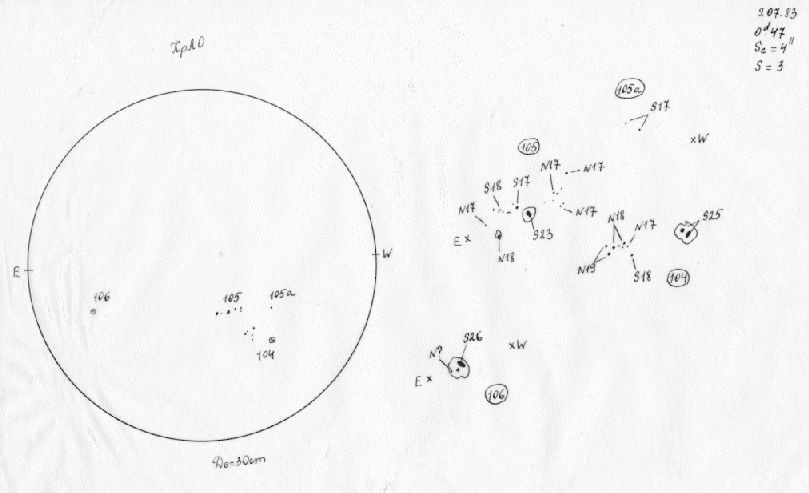 КрАО
2.07.83
0ᵈ47
S₀ = 4"
S = 3
E
W
106
105
105a
104
D₀=30cm
105a
S17
xW
105
N17
N17
S18
S17
N17
N17
E x
S23
N18
N18
N17
S25
N19
S18
104
S26
xW
N?
E x
106